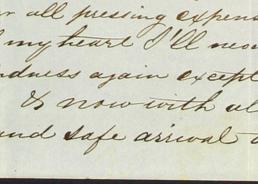 all pressing expens
my heart I'll nev
dness again except
& now with al
and safe arrival